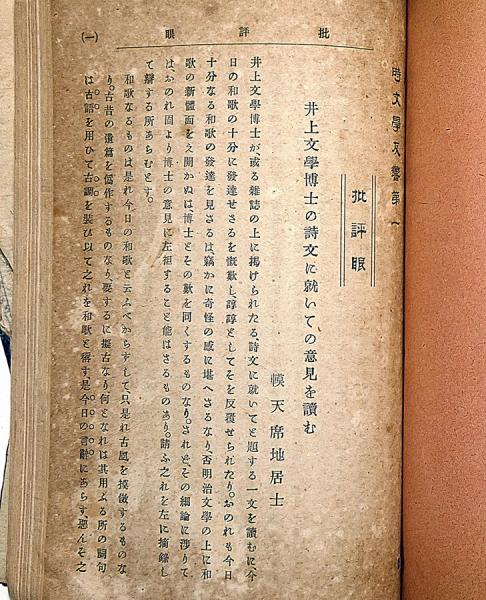 時文學反響第一
批評眼
井上文學博士の詩文に就いての意見を讀む
幕天席地居士
井上文學博士が、或る雜誌の上に掲げられたる、詩文に就いてと題する一文を讀むに、今
日の和歌の十分に發達せさるを慨歎し、諄諄としてそを反覆せられたり。おのれも今日
十分なる和歌の發達を見さるは、竊かに奇怪の感に堪へさるなり、否明治文學の上に和
歌の新體面をえ開かぬは博士とその歎を同くするものなり。されと、その細論に渉りて
は、おのれ固より博士の意見に左袒すること能はさるものあり。請ふ之れを左に摘録し
て辯する所あらむとす。
和歌なるものは是れ今日の和歌と云ふべからすして、只是れ古風を摸倣するものな
り。古昔の遺篇を僞作するものなり、要するに擬古なり何となれは其用ふる所の詞句
は古語を用ひて古調を裝ひ以て之れを和歌と稱す是今日の言辭にあらす恐んそ之
批評眼
(一)